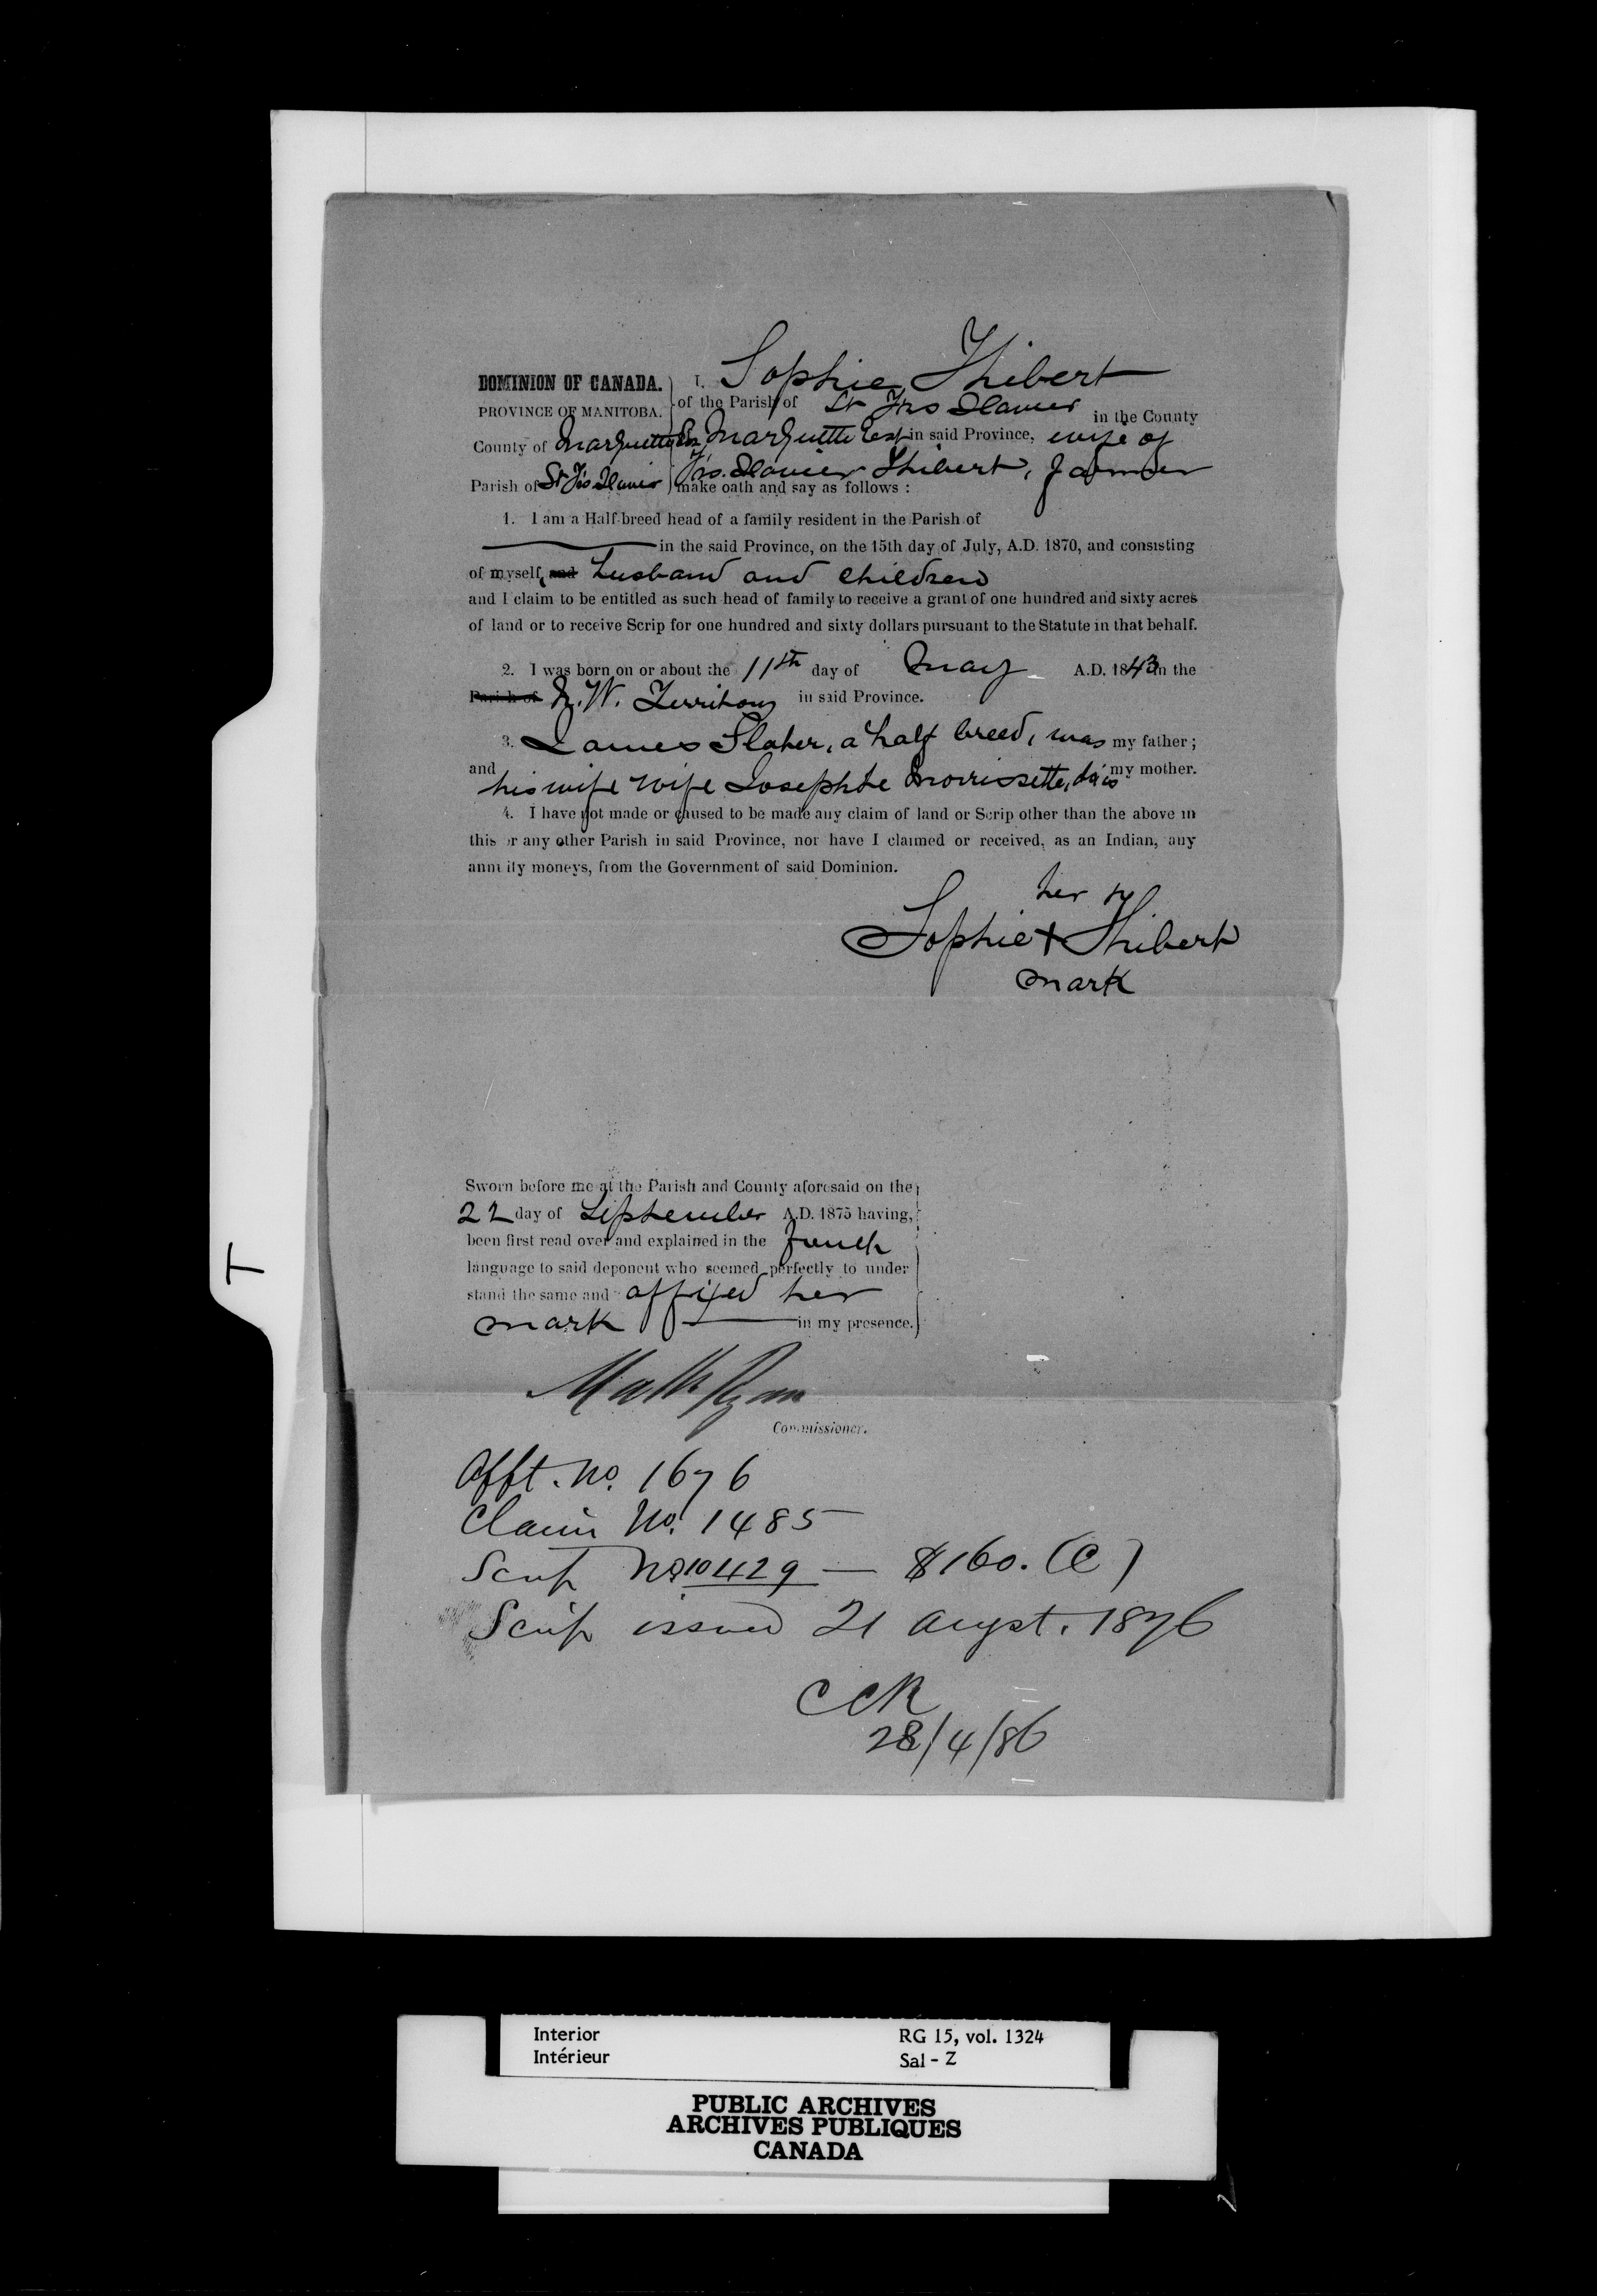 DOMINION OF CANADA. I, Sophie Thibert
PROVINCE OF MANITOBA. of the Parish of St Frs Xavier in the County
County of Marquette East Marquette East in said Province, wife of
Frs. Xavier Thibert, farmer
Parish of St Frs Xavier make oath and say as follows:
1. I am a Half-breed head of a family resident in the Parish of
in the said Province, on the 15th day of July, A.D. 1870, and consisting
of myself, and husband and children
and I claim to be entitled as such head of family to receive a grant of one hundred and sixty acres
of land or to receive Scrip for one hundred and sixty dollars pursuant to the Statute in that behalf.
2. I was born on or about the 11th day of May A.D. 1843 in the
Parish of N. W. Territory in said Province.
3. James Slater, a half breed, was my father;
and his wife wife Josephte Morrissette, do is my mother.
4. I have not made or caused to be made any claim of land or Scrip other than the above in
this or any other Parish in said Province, nor have I claimed or received, as an Indian, any
annuity moneys, from the Government of said Dominion.
her
Sophie + Thibert
mark
Sworn before me at the Parish and County aforesaid on the
22 day of September A.D. 1875 having,
been first read over and explained in the french
language to said deponent who seemed perfectly to under
stand the same and affixed her
mark in my presence.
Matt Ryan
Commissioner.
Afft. No. 1676
Claim No. 1485
Scrip No 10429 — $160. (C)
Scrip issued 21 Augst. 1876
CCR
28/4/86
T
Interior RG 15, vol. 1324
Intérieur Sal - Z
PUBLIC ARCHIVES
ARCHIVES PUBLIQUES
CANADA